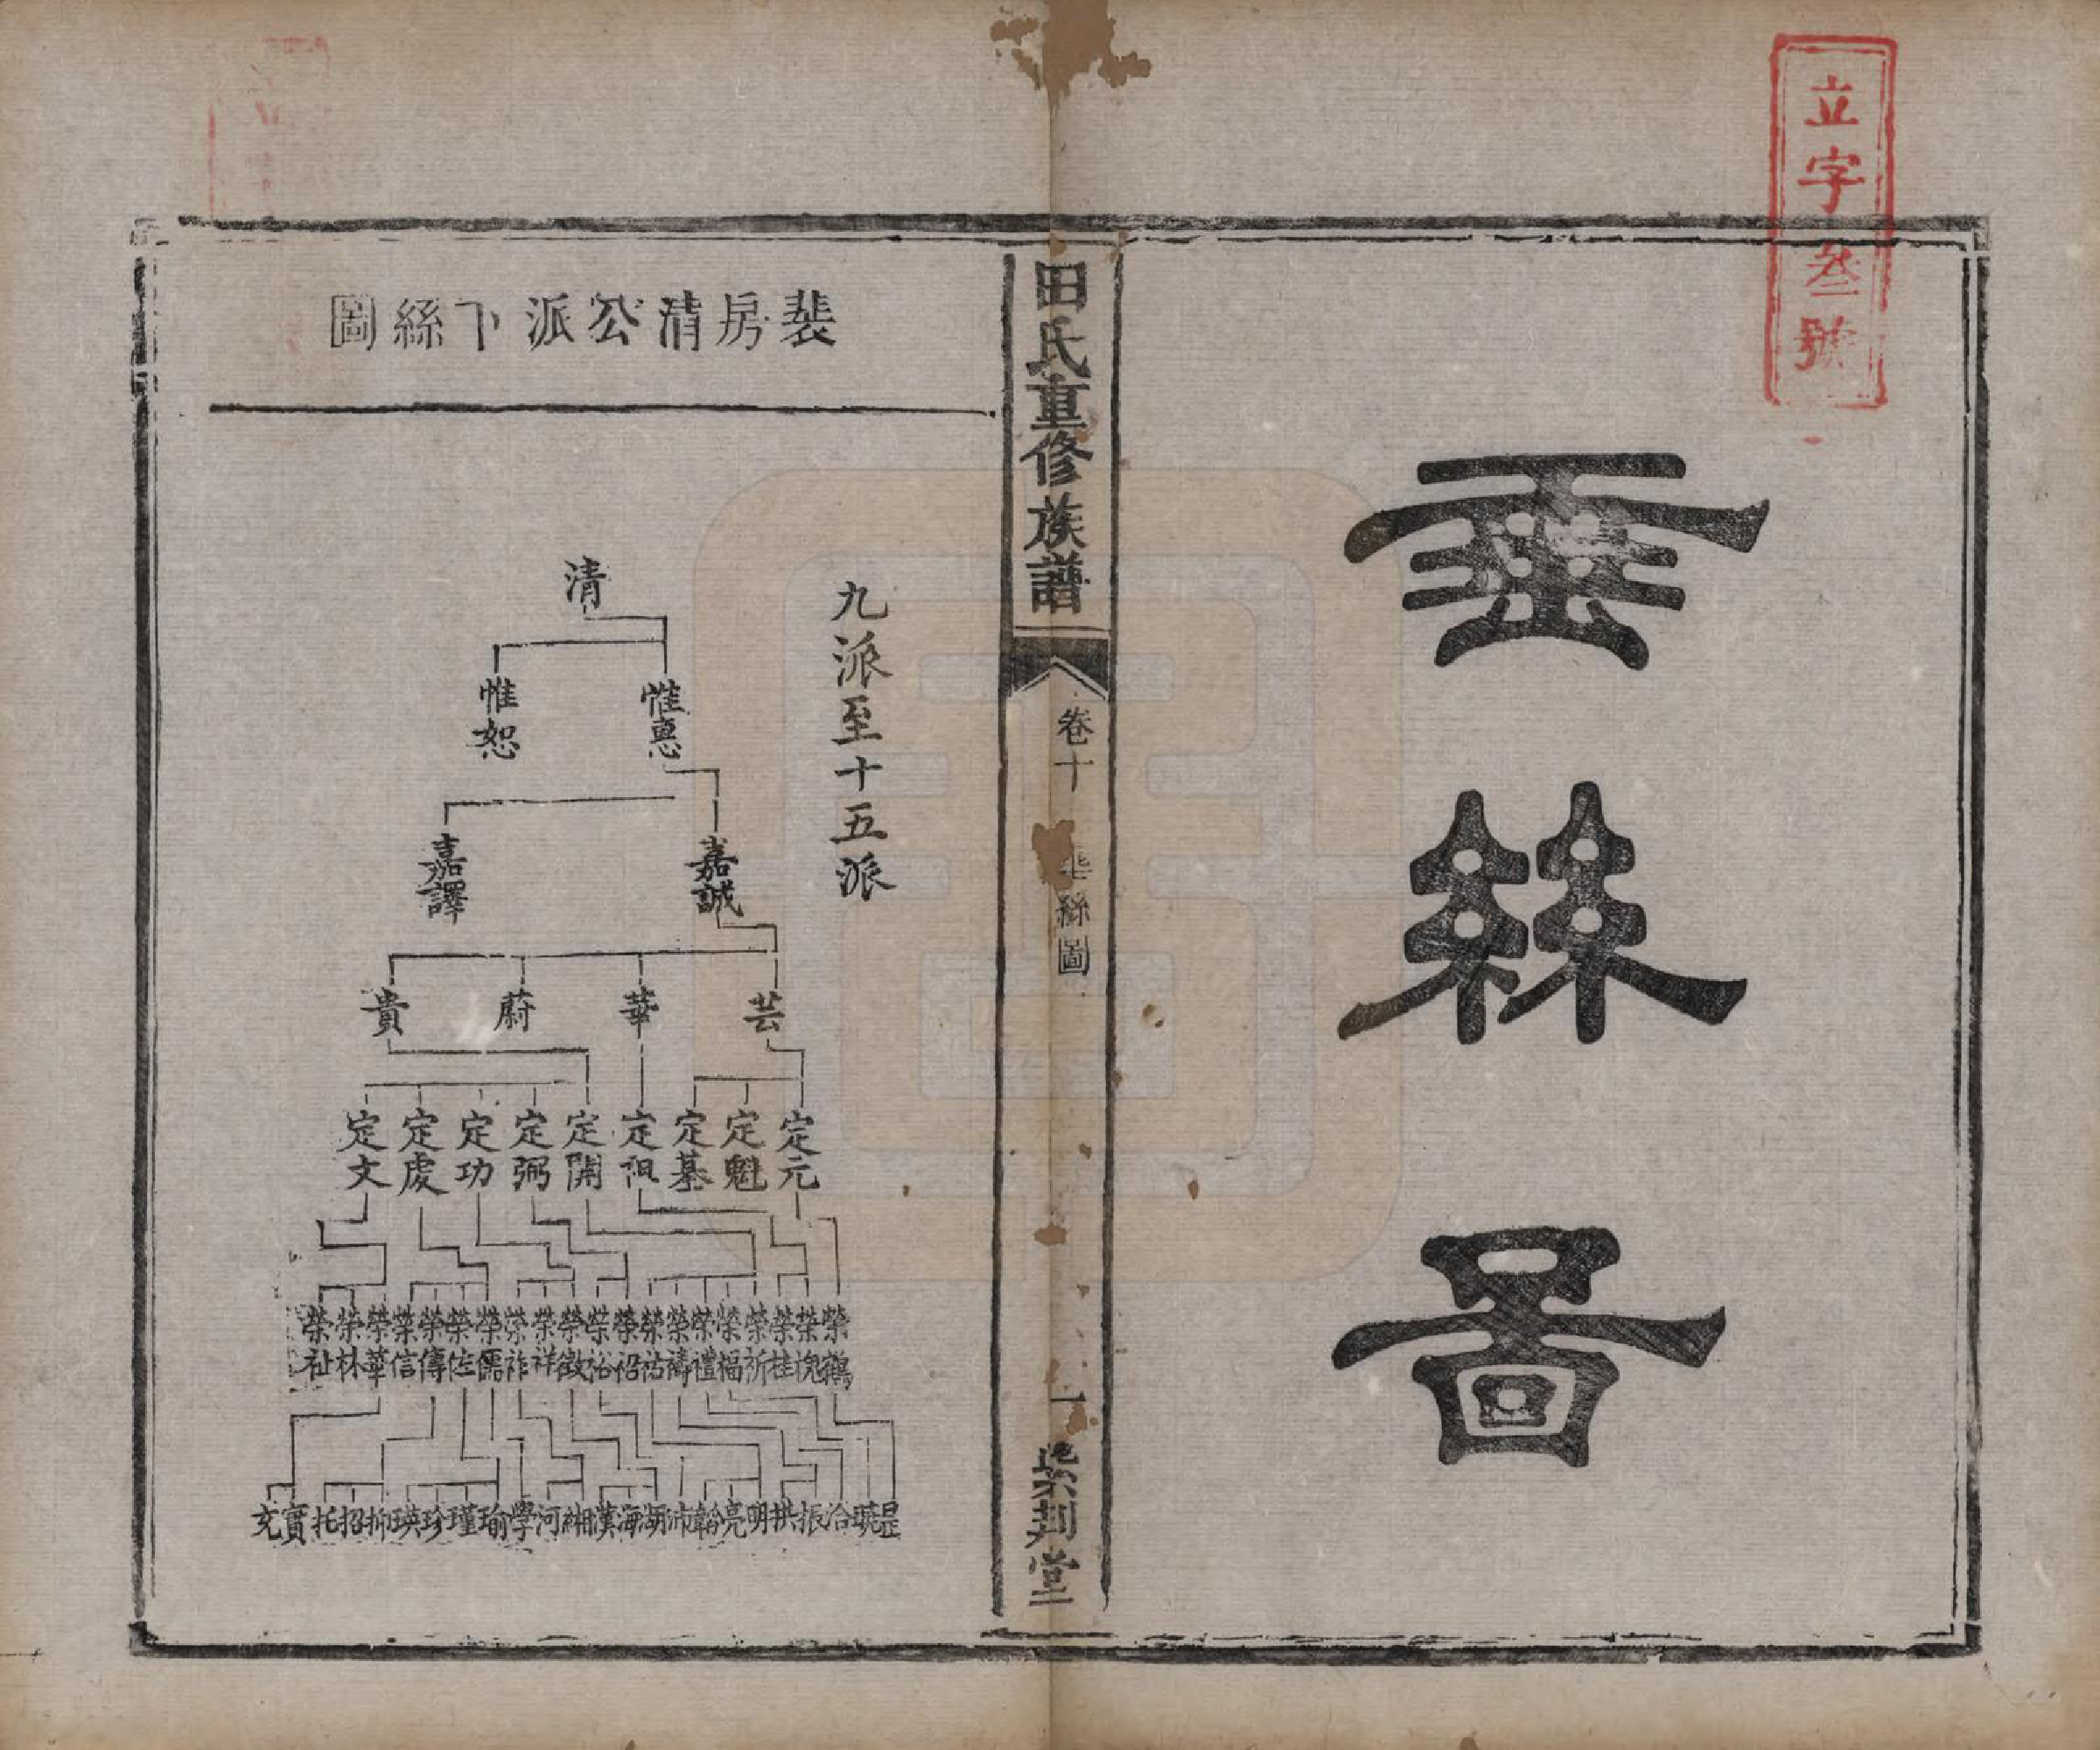 立字叁號
垂絲圖
田氏重修族譜
卷十
垂絲圖
一
紫荆堂
裴房清公派下絲圖
九派至十五派
清
惟惠 惟恕
嘉誠 嘉譯
芸 華 蔚 貴
定元 定魁 定基 定祖 定開 定弼 定功 定處 定文
榮鶴 榮槐 榮桂 榮祈 榮福 榮禮 榮禱 榮祜 榮祒 榮裕 榮徵 榮祥 榮祚 榮儒 榮佐 榮傳 榮信 榮華 榮林 榮祉
昰 暎 洽 振 拱 明 亮 翰 沛 湖 海 漢 湘 河 學 瑜 瑾 珍 瑛 招 托 寶 充